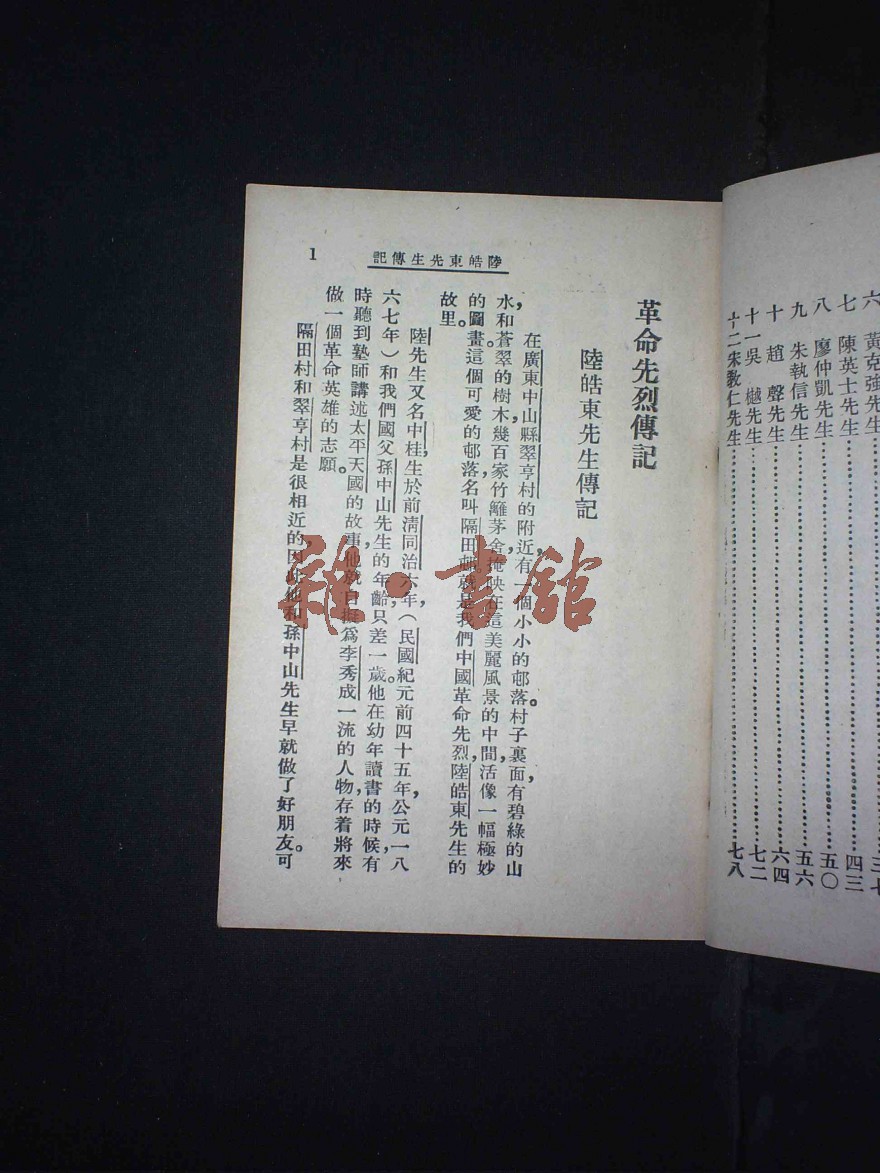 六 黃克強先生………三十
七 陳英士先生………四三
八 廖仲凱先生………五〇
九 朱執信先生………五六
十 趙 聲先生………六四
十一 吳 樾先生………七二
十二 宋教仁先生………七八
陸皓東先生傳記
1
革命先烈傳記
陸皓東先生傳記
在廣東中山縣翠亨村的附近,有一個小小的邨落。村子裏面,有碧綠的山
水,和蒼翠的樹木。幾百家竹籬茅舍,掩映在這美麗風景的中間,活像一幅極妙
的圖畫。這個可愛的邨落,名叫隔田邨。就是我們中國革命先烈,陸皓東先生的
故里。
陸先生又名中桂,生於前清同治六年,(民國紀元前四十五年,公元一八
六七年)和我們國父孫中山先生的年齡,只差一歲。他在幼年讀書的時候,有
時聽到塾師講述太平天國的故事,他就自擬爲李秀成一流的人物,存着將來
做一個革命英雄的志願。
隔田村和翠亨村是很相近的,因此他和孫中山先生早就做了好朋友。可
雜·書館